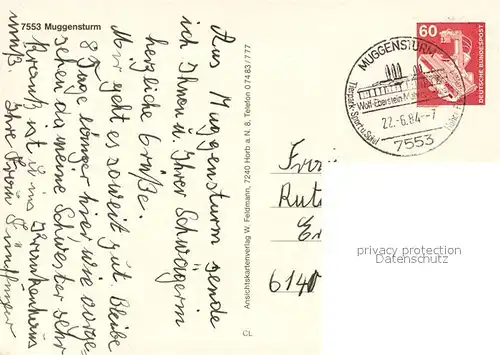 7553 Muggensturm
Aus Muggensturm sende
ich Ihnen u. Ihrer Schwägerin
herzliche Grüße.
Mir geht es soweit gut. Bleibe
8 Tage länger hier, wie vorge-
sehen da meine Schwester sehr
krank ist u. ins Krankenhaus
muß. Ihre Frau
Ansichtskartenverlag W. Feldmann, 7240 Horb a. N. 8, Telefon 0 74 83 / 7 77
CL
MUGGENSTURM
Wolf-Eberstein-
Tierpark-Sport u. Spiel
22.-6.84.--7
7553
60
DEUTSCHE BUNDESPOST
6140
privacy protection
Datenschutz